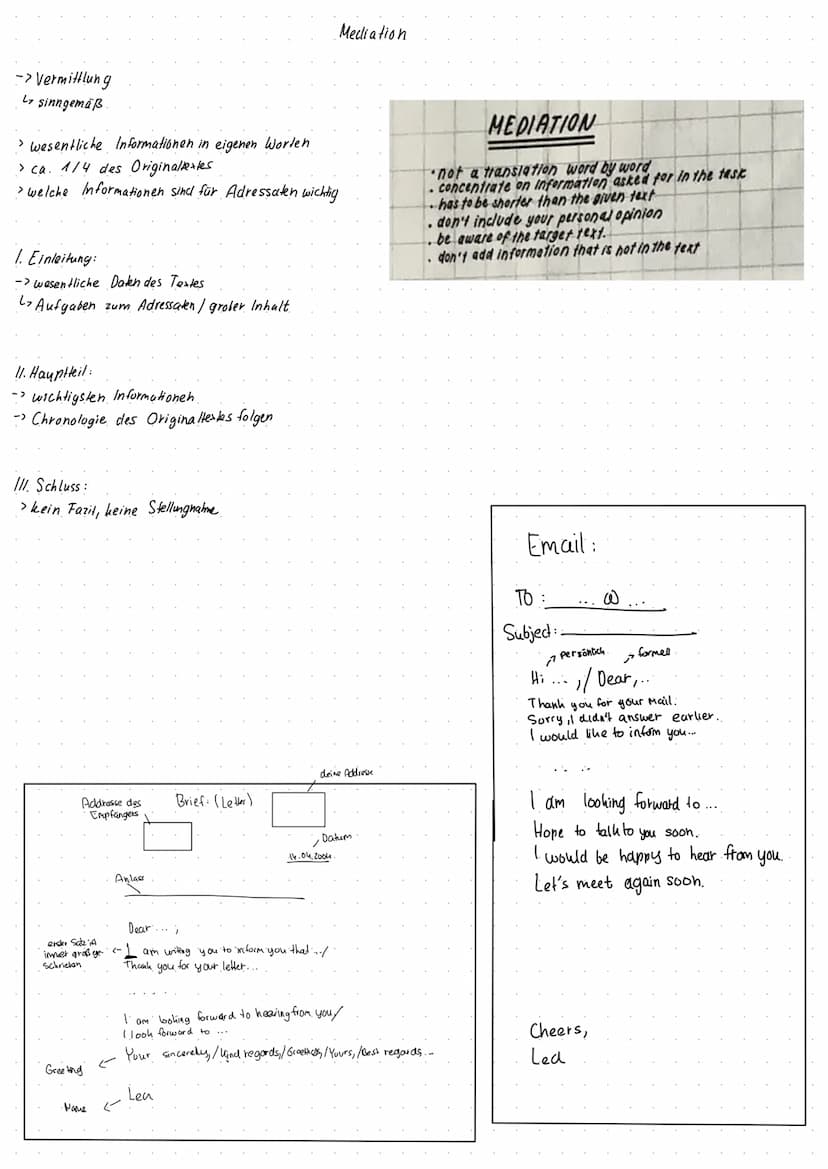 Mediation
-> Vermittlung
↳ sinngemäß
> wesentliche Informationen in eigenen Worten
> ca. 1/4 des Originaltextes
> welche Informationen sind für Adressaten wichtig
MEDIATION
· not a translation word by word
· concentrate on information asked for in the task
· has to be shorter than the given text
· don't include your personal opinion
· be aware of the target text.
· don't add information that is not in the text
I. Einleitung:
-> wesentliche Daten des Textes
↳ Aufgaben zum Adressaten / grober Inhalt
II. Hauptteil:
-> wichtigsten Informationen
-> Chronologie des Originaltextes folgen
III. Schluss:
> kein Fazit, keine Stellungnahme
Email:
To: ... @ ...
Subject:
persönlich formell
Hi ..., / Dear, ..
Thank you for your Mail.
Sorry, I didn't answer earlier..
I would like to inform you...
....
I am looking forward to ...
Hope to talk to you soon.
I would be happy to hear from you.
Let's meet again soon.
Cheers,
Lea
deine Addresse
Addresse des
Empfängers
Brief: (Letter)
Datum
14.04.2004
Anlass
Dear ... ,
erster Satz:
immer großge-
schrieben
<- I am writing you to inform you that .. /
Thank you for your letter...
.....
I am looking forward to hearing from you /
I look forward to ...
Your sincerely, / Kind regards, / Greetings, / Yours, / Best regards ...
Greeting
Lea
Name